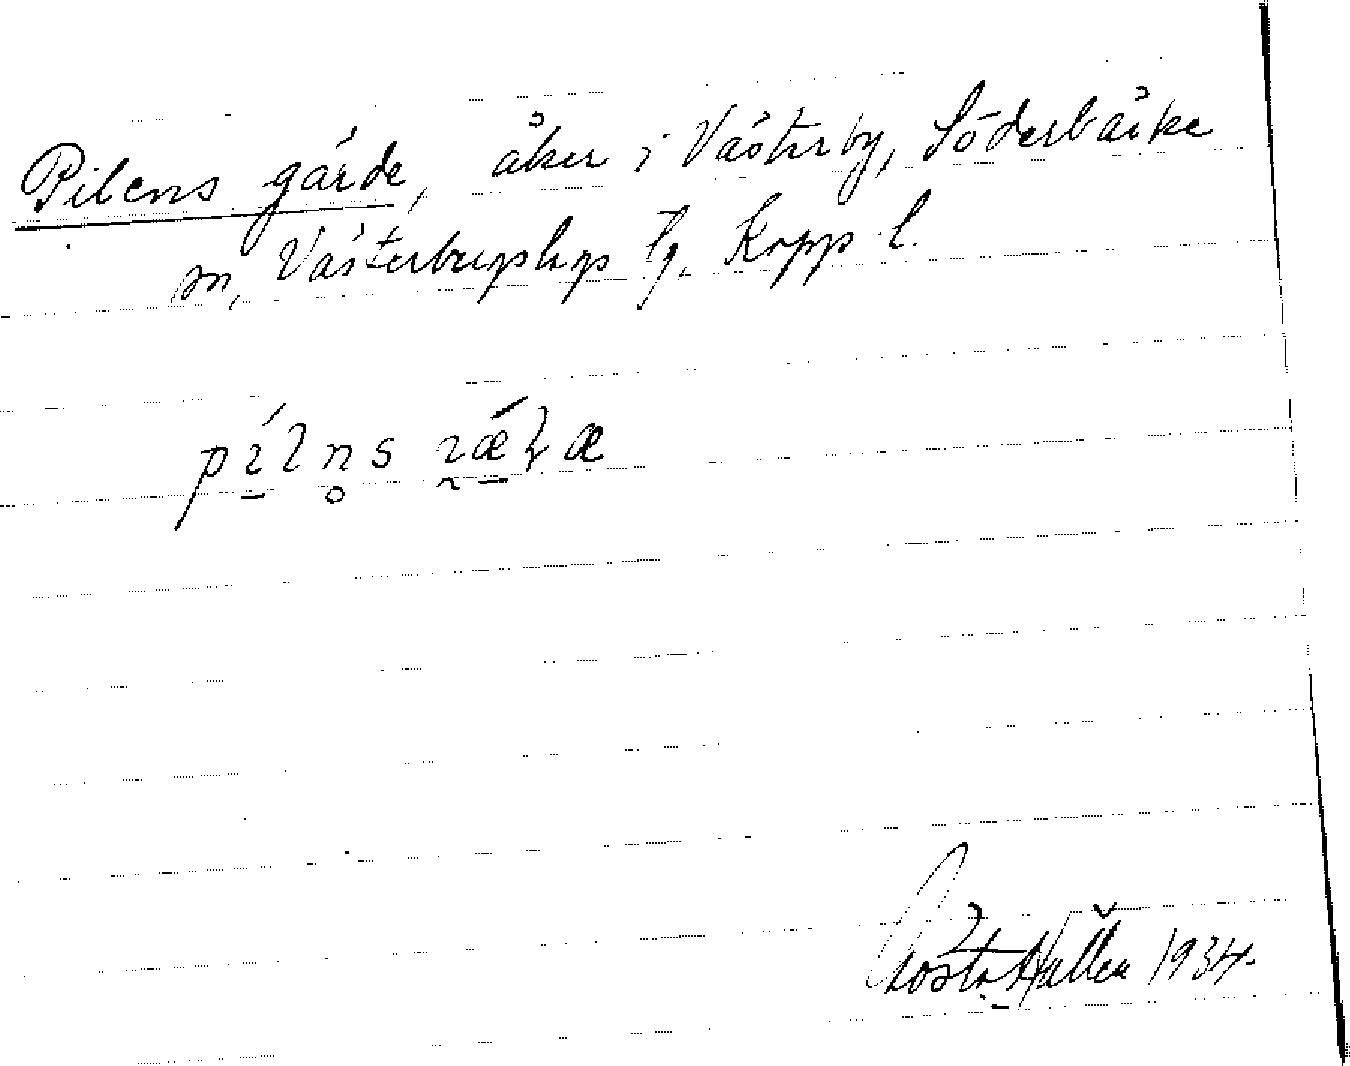 Pilens gärde, åker i Västerby, Söderbärke
sn, Västerbergslags tg. Kopp l.
Gösta Hallén 1934.